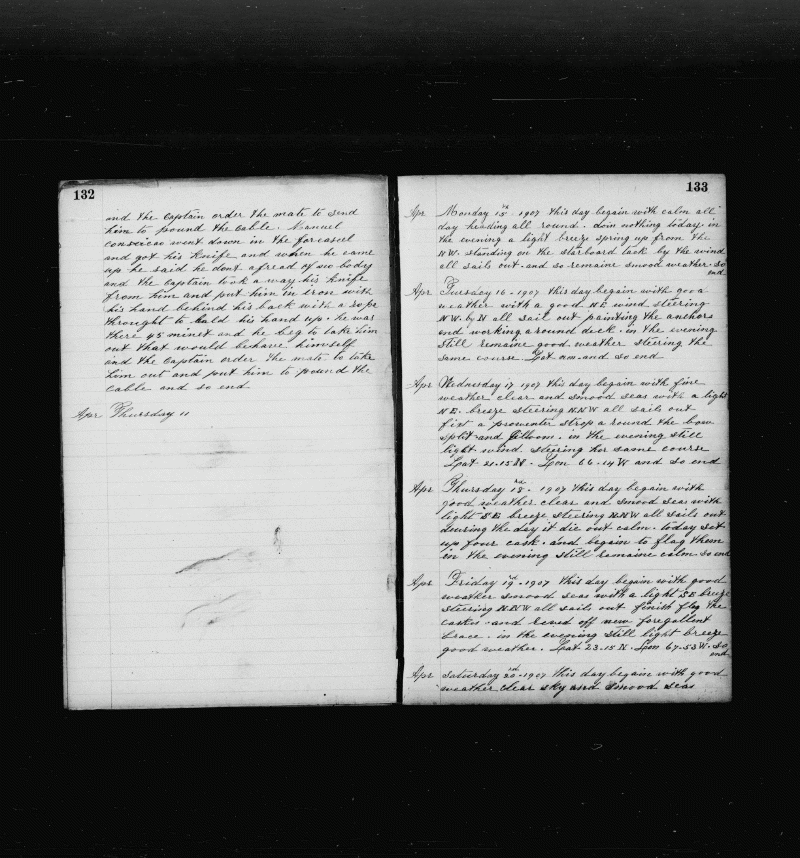 132
and the Captain order the mate to send
him to pound the cable. Manuel
conseicao went down in the forcasel
and got his Knife and when he came
up he said he dont afread of no body
and the Captain took a way his Knife
from him and put him in iron with
his hand behind his back with a rope
throught to hald his hand up. he was
there 45 minet and he beg to take him
out that would behave himself
and the Captain order the mate to take
him out and put him to pound the
cable and so end
Apr Thursday 11
133
Apr Monday 15 1907 this day began with calm all
day heading all round. doin nothing today. in
the evening a light breeze spring up from the
NW. standing on the starboard tack by the wind
all sails out. and so remaine smood weather. so
end
Apr Tuesday 16. 1907 this day began with good
weather with a good NE wind steering
NW. by N all sail out painting the anchors
and working around deck. in the evening
still remaine good weather steering the
same course. and so end
Apr Wednesday 17 1907 this day began with fine
weather clear and smood seas with a light
NE. breeze steering NNW all sails out
fixt a proventer strop a round the bow
split and Jibboom. in the evening still
light wind steering her same course
Lat 21.15 Lon 66.14 W and so end
Apr Thursday 18. 1907 this day began with
good weather clear and smood seas with
light SE breeze steering NNW all sails out
deuring the day it die out calm. today set
up four cask. and began to flag them
in the evening still remaine calm so end
Apr Friday 19. 1907 this day began with good
weather smood seas with a light SE breeze
steering NNW all sails out finish flag the
casks and reved off new foregallent
brace. in the evening still light breeze
good weather. Lat 23.15 N. Lon 67.53 W. so
end
Apr Saturday 20. 1907 this day began with good
weather clear sky and smood seas